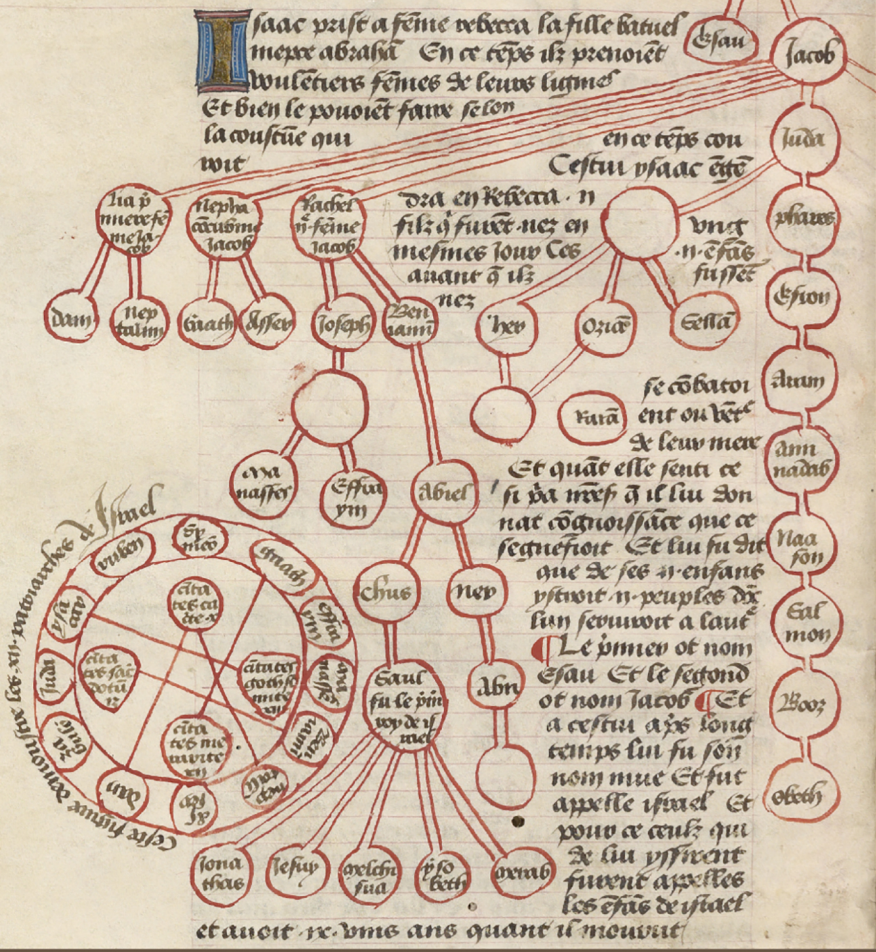 Isaac prist a fēme rebecca la fille batuel
niepce abrahā En ce tēps ilz prenoiēt
voulētiers fēmes de leurs lignies
Et bien le pouoiēt faire selon
la coustūe qui en ce tēps cou
roit Cestui ysaac ēgē
dra en Rebecca . ii
filz q̄ furēt nez en ung
mesmes Jour Ces .ii. ēfās
auant q̄ ilz fussēt
nez
se cōbatoi
ent ou vētᵉ
de leur mere
Et quāt elle senti ce
si p̄a nr̄es q̄ il lui don
nat cōgnoissāce que ce
segnefioit Et lui fu dit
que de ses .ii. enfans
ystroit .ii. peuples dōt
lun serviroit a lautᵉ
¶ Le p̄mier ot nom
Esau Et le segond
ot nom Jacob ¶ Et
a cestui ap̄s long
temps lui fu son
nom mue Et fut
appelle israel Et
pour ce ceulx qui
de lui yssirent
furent appelles
les ēfās de israel
et auoit ans quant il mourut
Esau
Jacob
Juda
phares
Esron
Aram
Ami
nadab
Naa
son
Sal
mon
Booz
obeth
lia p̄
miere fē
me Ja
cob
Rachel
ii fēme
Jacob
dam
nep
talim
Gath
Asser
Joseph
Ben
iamī
her
Sellā
Ma
nasses
Effra
ym
Abiel
chus
ner
Saul
fu le p̄m
roy de is
rael
Abn
Jona
thas
Jesuy
melchi
sua
yso
beth
merab
Ceste figure demonstre les .xii. patriarches de Israel
ruben
Sy
meō
effra
ym
ysa
car
Juda
za
bulo
dan
cita
tes
cita
tes sac̄
dotū
citates
cita
tes